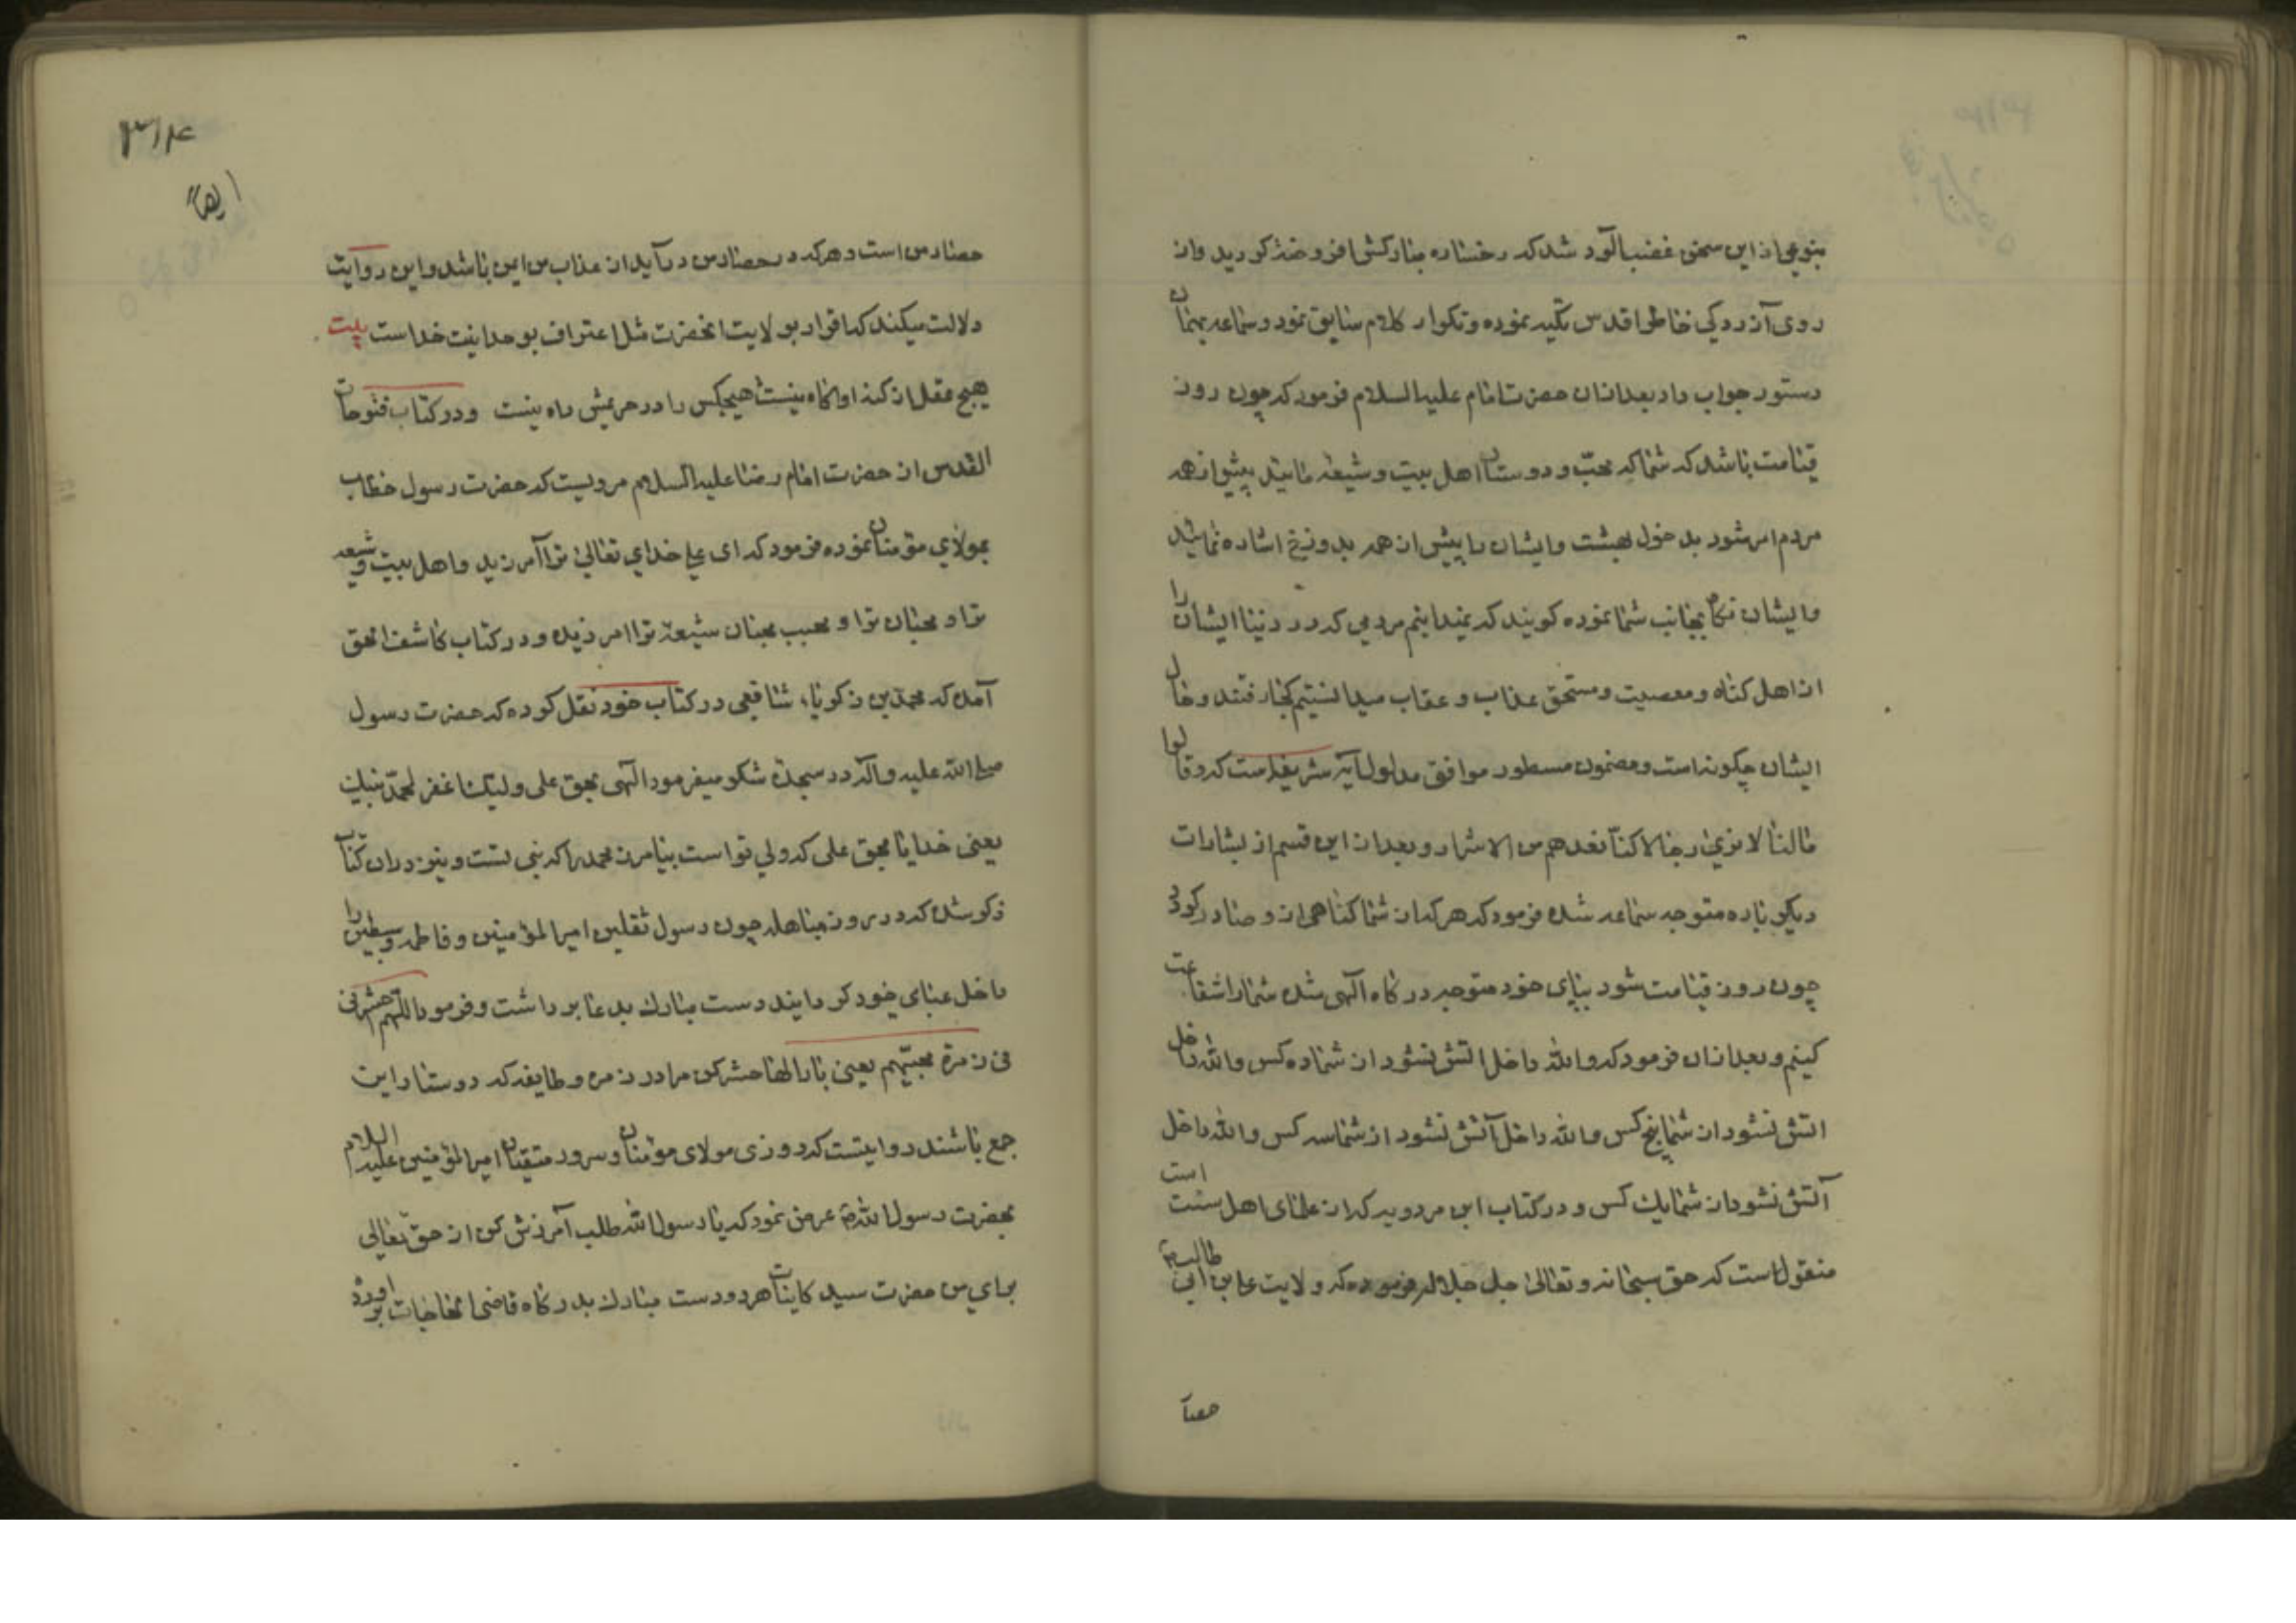 بنوعی از این سخن غضب آلود شد که رخساره مبارکش افروخته گردید واز
روی آزردگی خاطر اقدس تکیه نموده و تکرار کلام سابق نمود و سماعه بهمان
دستور جواب داد بعد ازان حضرت امام علیه السلام فرمود که چون روز
قیامت باشد که شما که محبّ و دوستان اهل بیت و شیعه مائید پیش از همه
مردم امر شود بدخول بهشت و ایشان را پیش از همه بدوزخ اشاره نمایند
و ایشان نگاه بجانب شما نموده گویند که نمیدانیم مردمی که در دنیا ایشان را
از اهل گناه و معصیت و مستحق عذاب و عقاب میدانستیم کجا رفتند و حال
ایشان چگونه است و مضمون مسطور موافق مدلول آیه شریفه است که و قالوا
مالنا لا نری رجالا کنّا نعدهم من الاشرار و بعد از این قسم از بشارات
دیگر باره متوجه سماعه شده فرمود که هر که از شما گناهی از و صادر گردد
چون روز قیامت شود بپای خود متوجه درگاه آلهی شده شما را شفاعت
کنیم و بعد ازان فرمود که والله داخل اتش نشود از شما ده کس والله داخل
اتش نشود از شما پنج کس والله داخل آتش نشود از شما سه کس والله داخل
آتش نشود از شما یک کس و در کتاب ابن مردویه که از علمای اهل سنت است
منقول است که حق سبحانه و تعالی جل جلاله فرموده که ولایت علی بن ابی طالب ع
حصا
٣١۴
ایضاً
حصار من است و هر که در حصار من درآید از عذاب من ایمن باشد و این روایت
دلالت میکند که اقرار بولایت انحضرت مثل اعتراف بوحدانیت خداست بیت
هیچ عقل از کنه او اگاه نیست هیچکس را در حریمش راه نیست ودر کتاب فتوحات
القدس از حضرت امام رضا علیه السلام مرویست که حضرت رسول خطاب
بمولای مؤمنان نموده فرمود که ای علی خدای تعالی ترا آمرزید و اهل بیت و شیعه
ترا و محبان ترا و محب محبان شیعه ترا امرزیده و در کتاب کاشف الحق
آمده که محمد بن زکریاء شافعی در کتاب خود نقل کرده که حضرت رسول
صلی الله علیه و آله در سجدهٔ شکر میفرمود الهی بحق علی ولیک اغفر لمحمّد نبیک
یعنی خدایا بحق علی که ولی تو است بیامرز محمد را که نبی تست و نیز دران کتاب
ذکر شده که در روز مباهله چون رسول ثقلین امیرالمؤمنین و فاطمه و سبطین را
داخل عبای خود گردانیدند دست مبارک بدعا برداشت و فرمود اللّهم احشرنی
فی زمرة محبّیهم یعنی بارالها حشر کن مرا در زمره و طایفه که دوستدار این
جمع باشند روایتست که روزی مولای مومنان و سرور متقیان امیرالمؤمنین علیه السلام
بحضرت رسول الله ص عرض نمود که یا رسول الله طلب آمرزش کن از حق تعالی
برای من حضرت سید کاینات هر دو دست مبارک بدرگاه قاضی الحاجات برآورد